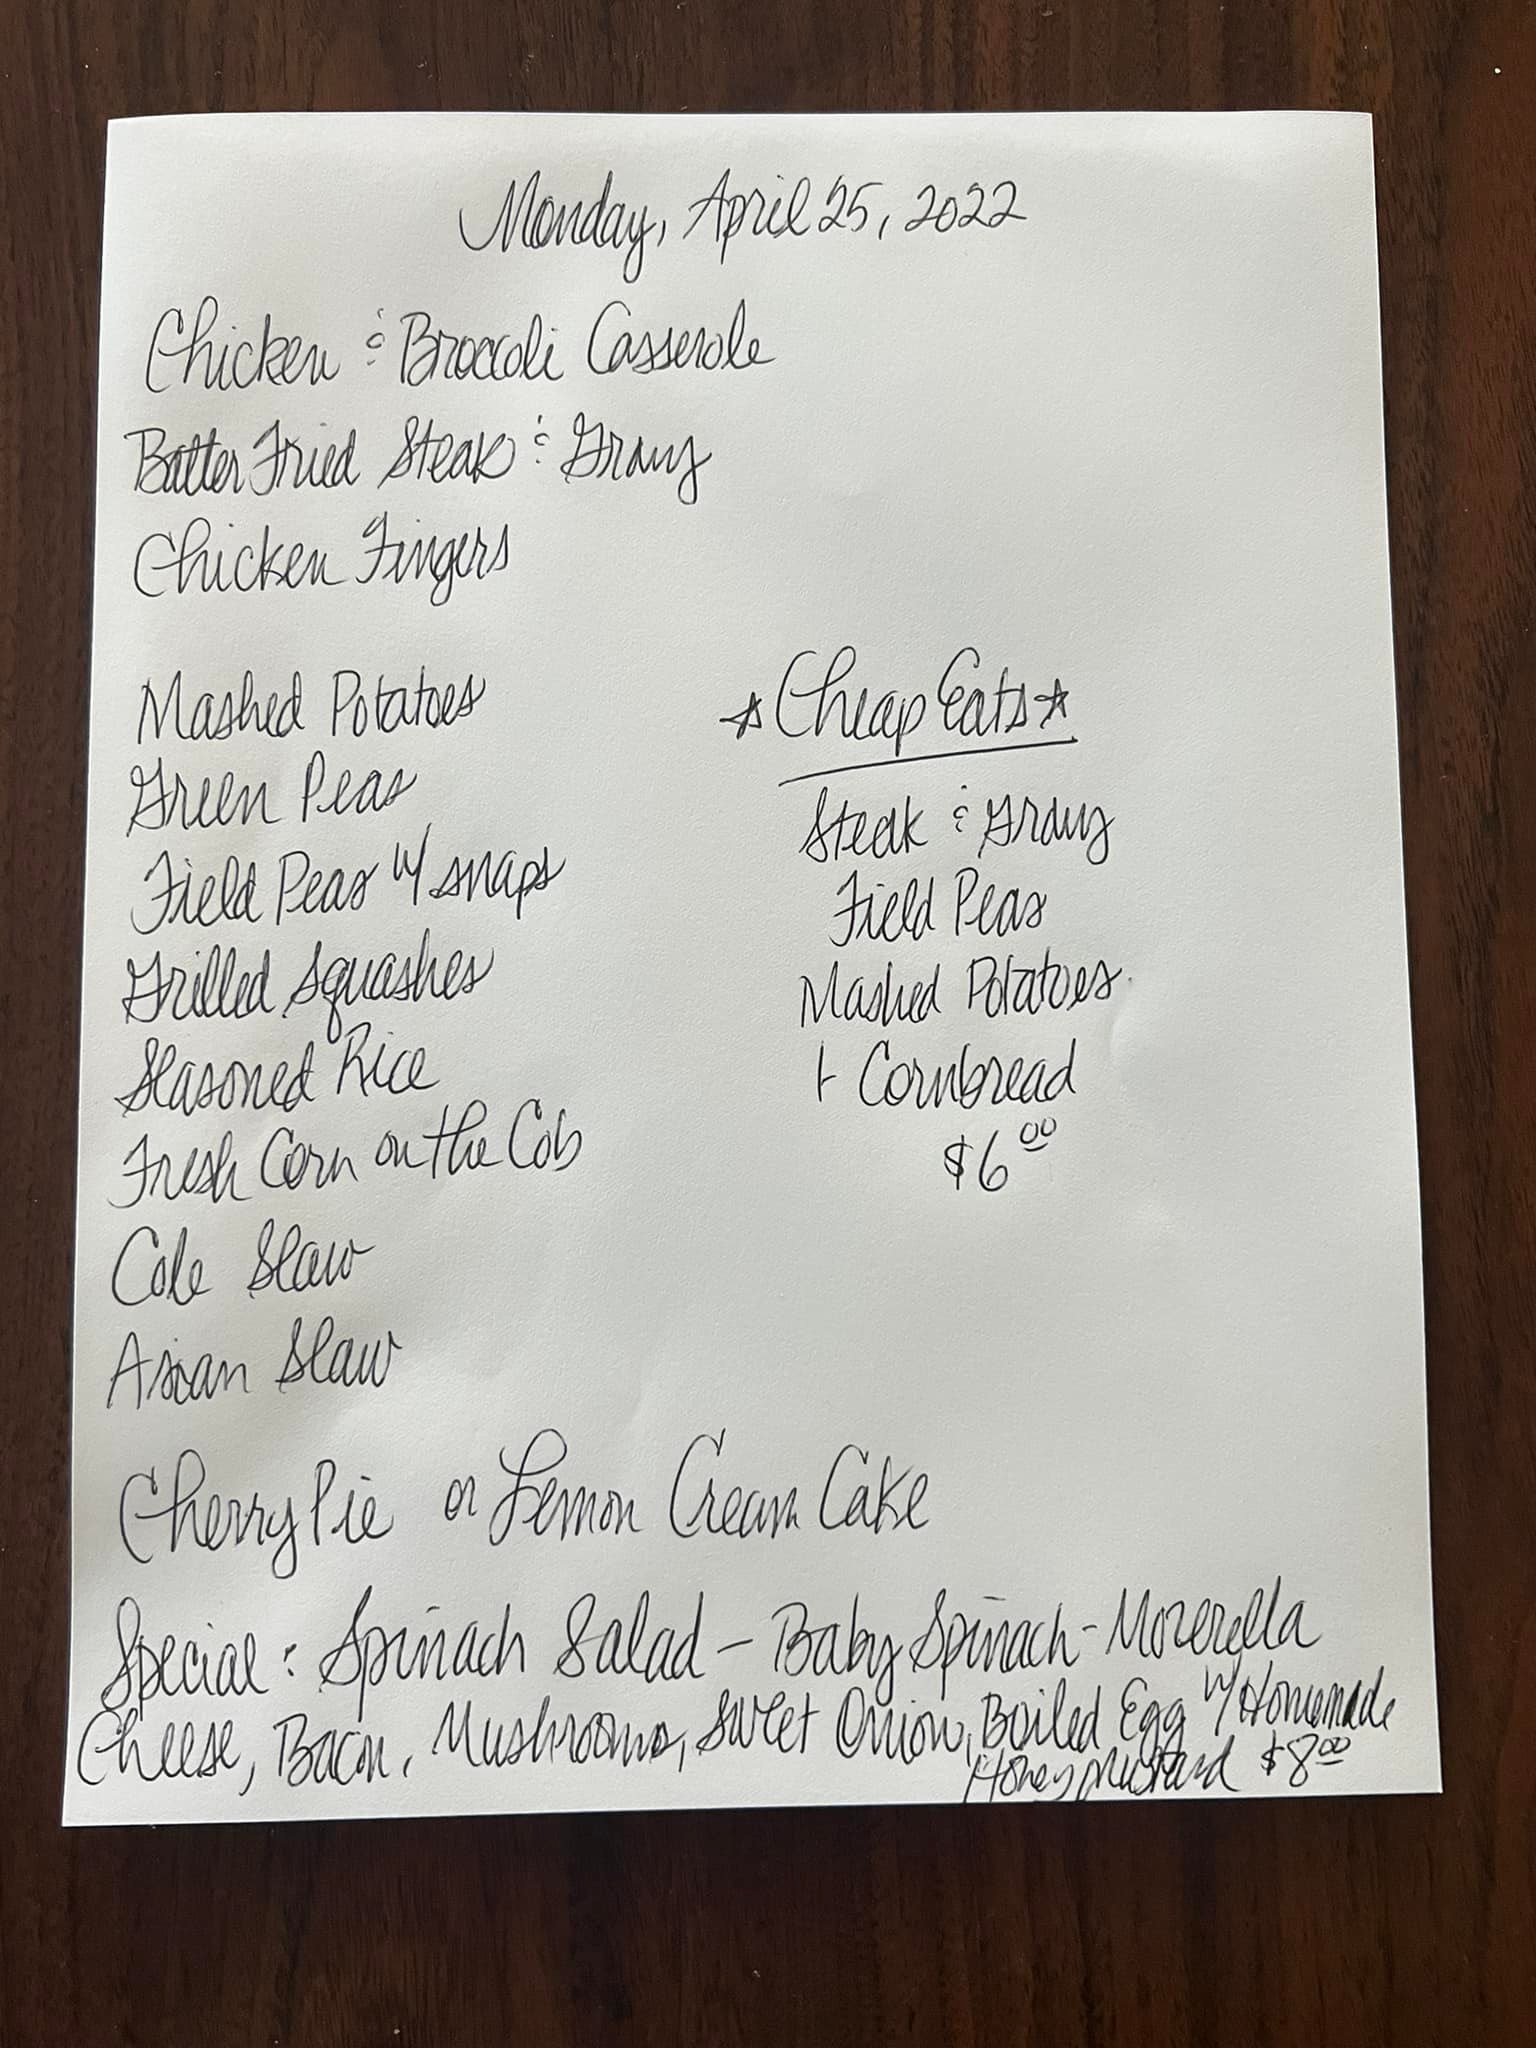 Monday, April 25, 2022
Chicken & Broccoli Casserole
Batter Fried Steak & Gravy
Chicken Fingers
Mashed Potatoes
Green Peas
Field Peas w/ snaps
Grilled Squashes
Seasoned Rice
Fresh Corn on the Cob
Cole Slaw
Asian Slaw
☆ Cheap Eats ☆
Steak & Gravy
Field Peas
Mashed Potatoes
+ Cornbread
$6.00
Cherry Pie or Lemon Cream Cake
Special: Spinach Salad - Baby Spinach - Mozerella
Cheese, Bacon, Mushrooms, Sweet Onion, Boiled Egg w/ Homemade
Honey Mustard $8.00